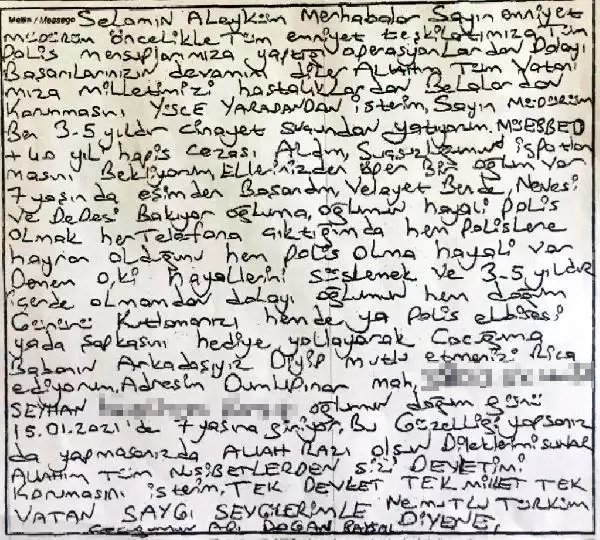 Metin / Message
Selamın Aleyküm Merhabalar Sayın emniyet
müdürüm öncelikle Tüm emniyet teşkilatımıza Tüm
Polis mensuplarımıza yaptığı operasyonlardan Dolayı
Başarılarınızın devamını diler Allahım Tüm Vatanı
mıza milletimizi hastalıklardan Belalardan
Korunmasını YÜCE YARADANDAN isterim, Sayın MÜDÜRÜM
Ben 3-5 yıldır cinayet suçundan yatıyorum. MÜEBBED
+ 40 yıl hapis cezası Aldım, Suçsuzluğumun ispatlan
masını Bekliyorum, Ellerinizden öper Bir oğlum var
7 yaşında eşimden Boşandım, Velayet Bende, Nenesi
ve Dedesi Bakıyor oğluma, oğlumun hayali polis
olmak her Telefona çıktığımda hem polislere
hayran olduğunu hem polis olma hayali var
Benen o,ki hayallerini süslemek ve 3-5 yıldır
içerde olmamdan dolayı oğlumun hem doğum
Gününü Kutlamanızı hemde ya polis elbisesi
yada şapkasını hediye yollayarak Çocuğuma
Babanın Arkadaşıyız Diyip mutlu etmenizi Rica
ediyorum, Adresim Dumlupınar mah,
SEYHAN oğlumun doğum günü
15.01.2021'de 7 yaşına giriyor. Bu Güzelliği yapsanız
da yapmasanızda ALLAH RAZI olsun Dileklerimi sunar
Allahım TÜM MUSİBETLERDEN SİZİ DEVLETİMİ
Korumasını isterim, TEK DEVLET TEK MİLLET TEK
VATAN SAYGI SEVGİLERİMLE NE MUTLU TÜRKÜM
DİYENE,
Çocuğumun ADI DOĞAN BAYSAL